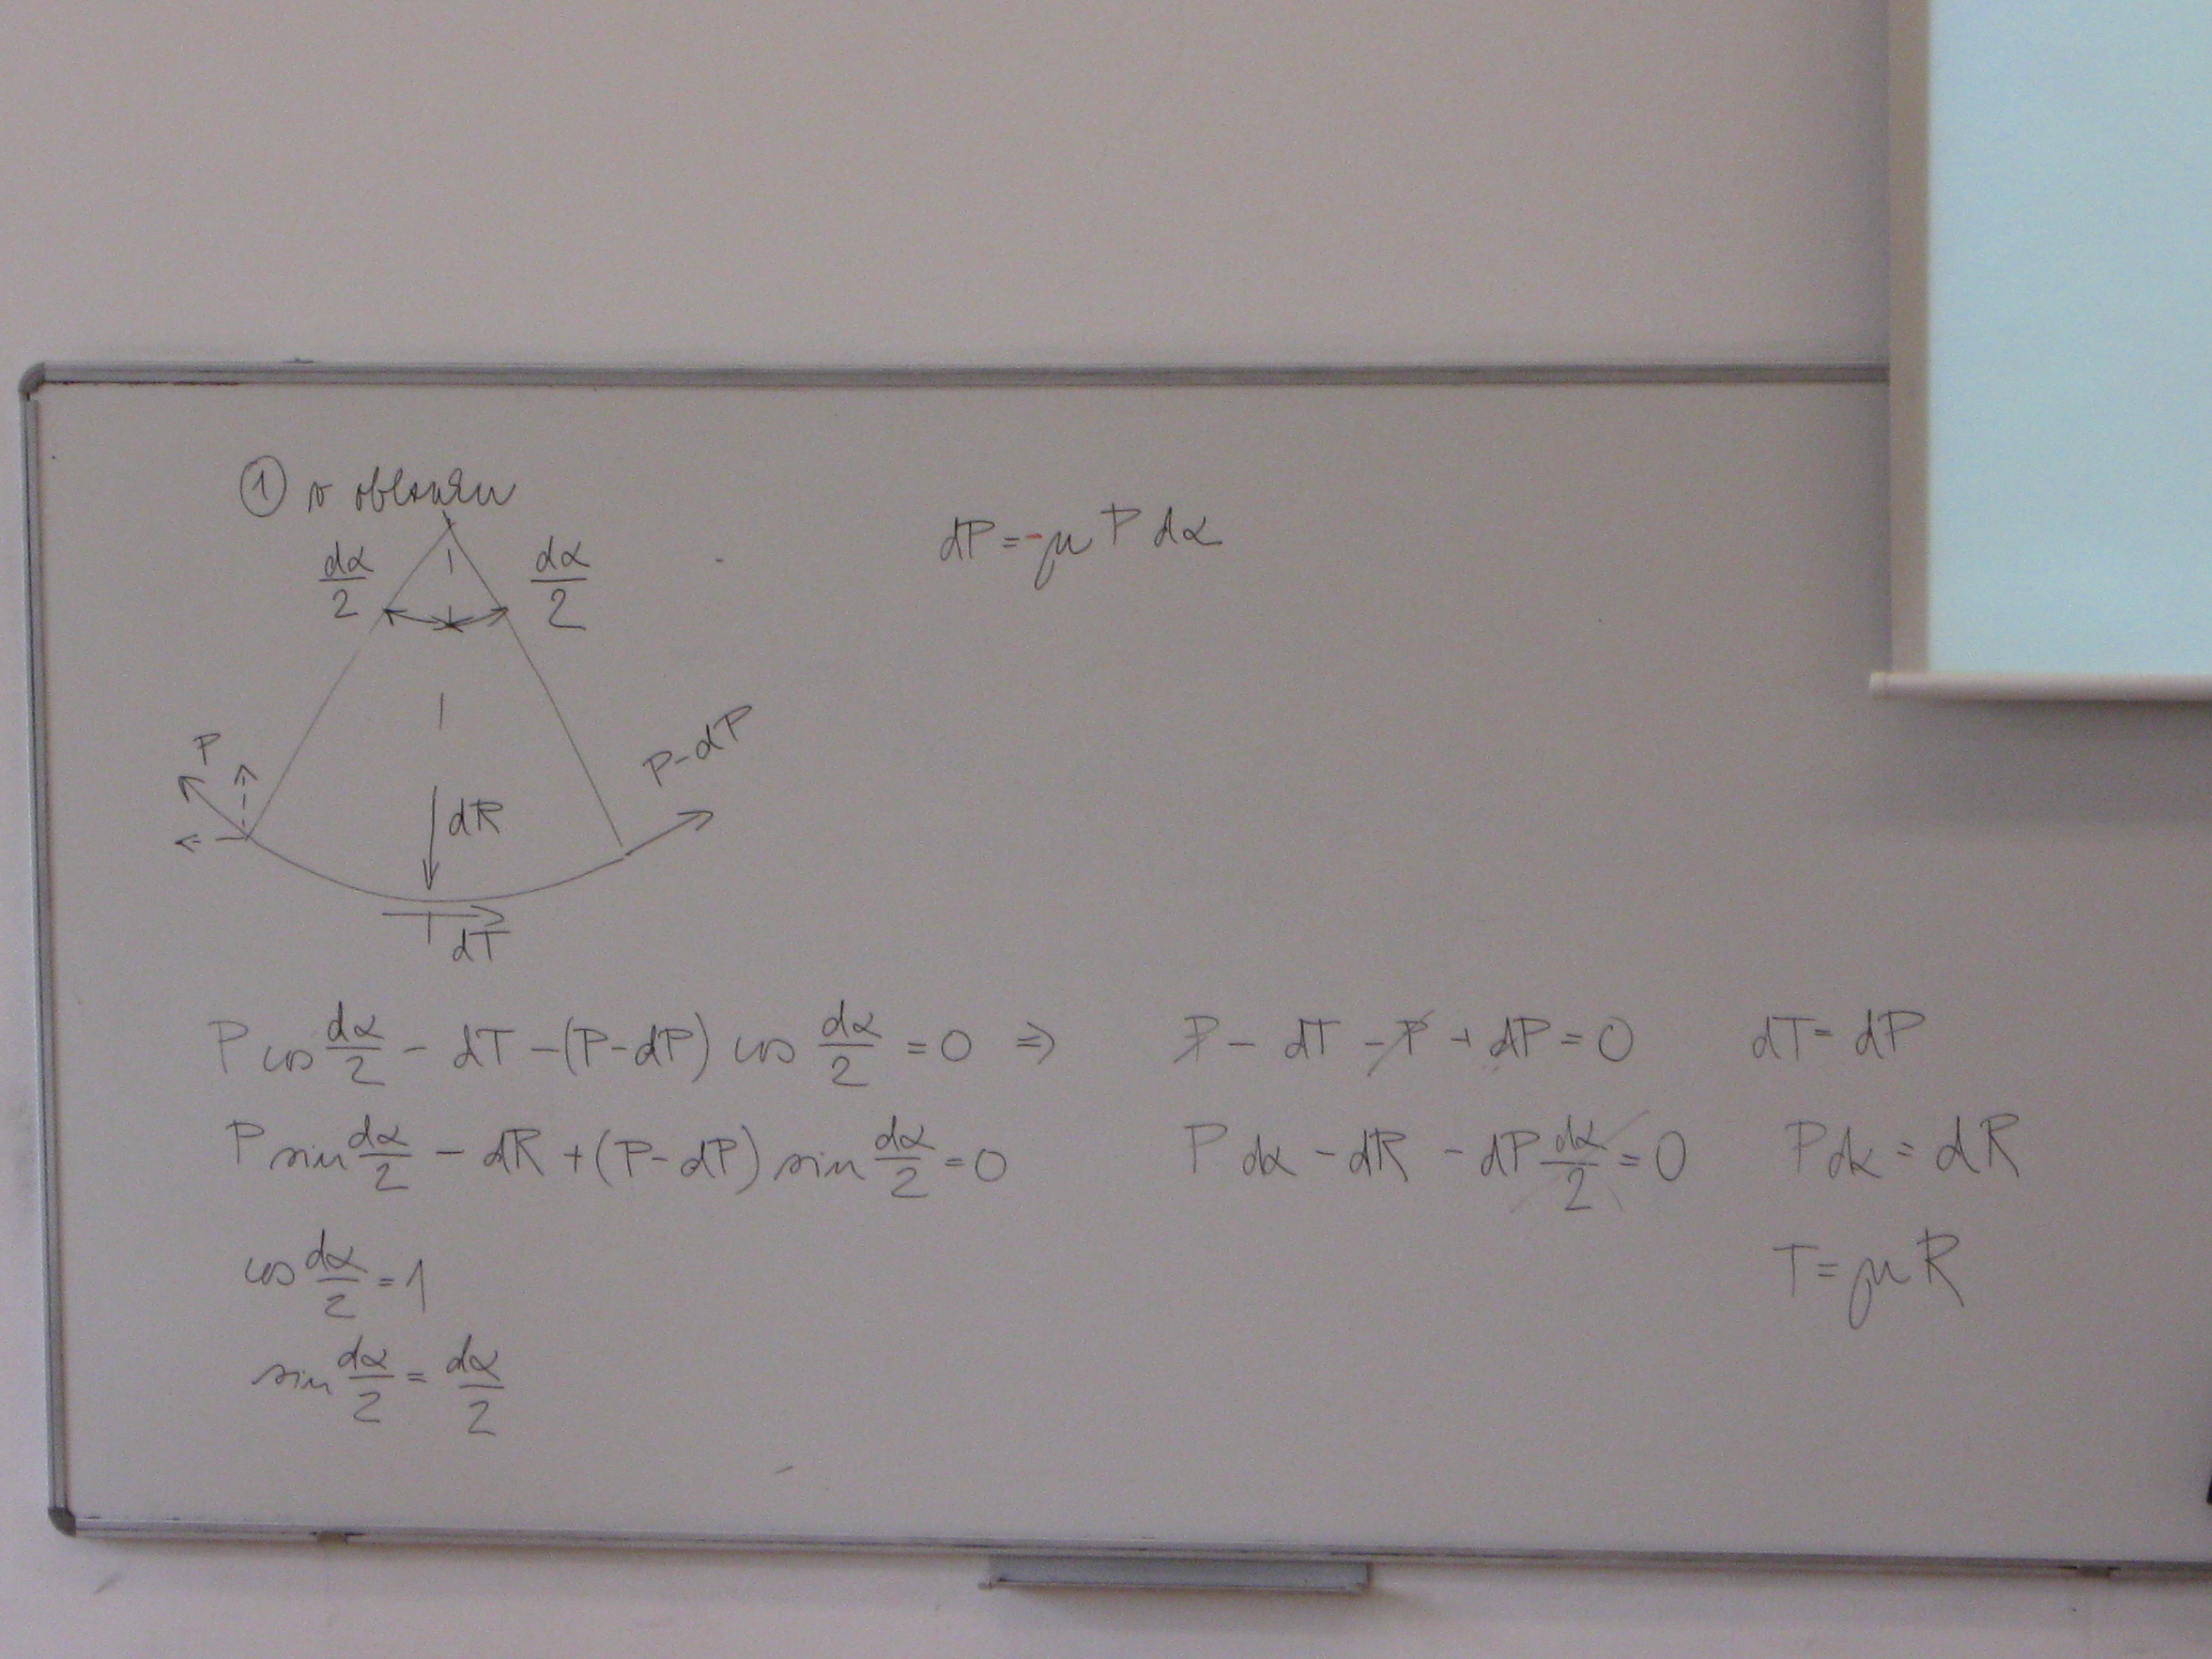 ① v oblouku
dα/2 dα/2
dP = -μ P dα
P
P-dP
dR
dT
P cos dα/2 - dT - (P-dP) cos dα/2 = 0 ⇒ P - dT - P + dP = 0 dT = dP
P sin dα/2 - dR + (P-dP) sin dα/2 = 0 P dα - dR - dP dα/2 = 0 P dα = dR
cos dα/2 = 1 T = μ R
sin dα/2 = dα/2